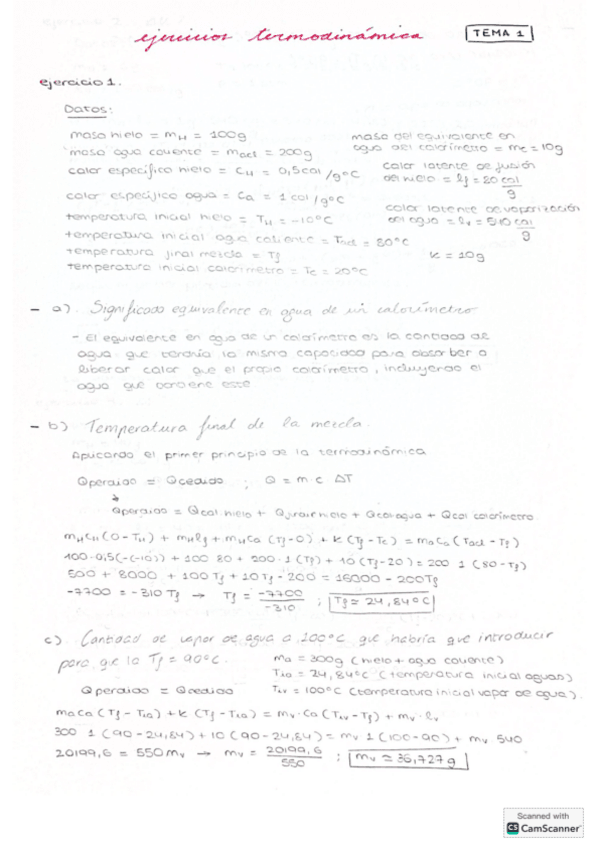 ejercicios termodinámica
TEMA 1
ejercicio 1.
Datos:
masa hielo = mH = 100g
masa agua caliente = mact = 200g
calor específico hielo = CH = 0,5 cal/g°C
calor específico agua = Ca = 1 cal/g°C
temperatura inicial hielo = TH = -10°C
temperatura inicial agua caliente = Tact = 80°C
temperatura final mezcla = Tf
temperatura inicial calorímetro = Tc = 20°C
masa del equivalente en
agua del calorímetro = mc = 10g
calor latente de fusión
del hielo = lf = 80 cal/g
calor latente de vaporización
del agua = lv = 540 cal/g
k = 10g
- a) Significado equivalente en agua de un calorímetro
- El equivalente en agua de un calorímetro es la cantidad de
agua que tendría la misma capacidad para absorber o
liberar calor que el propio calorímetro, incluyendo el
agua que contiene este
- b) Temperatura final de la mezcla.
Aplicando el primer principio de la termodinámica
Qperdido = Qcedido ; Q = m·c ΔT
Qperdido = Qcal hielo + Qfundir hielo + Qcal agua + Qcal calorímetro
mHCH(0-TH) + mHlf + mHCa(Tf-0) + k(Tf-Tc) = maCa(Tact-Tf)
100·0,5(-(-10)) + 100·80 + 200·1(Tf) + 10(Tf-20) = 200·1(80-Tf)
500 + 8000 + 100Tf + 10Tf - 200 = 16000 - 200Tf
-7700 = -310Tf → Tf = -7700/-310 ; Tf ≃ 24,84°C
c) Cantidad de vapor de agua a 100°C que habría que introducir
para que la Tf = 90°C.
ma = 300g (hielo + agua caliente)
Tia = 24,84°C (temperatura inicial aguas)
Tiv = 100°C (temperatura inicial vapor de agua).
Qperdido = Qcedido
maCa(Tf-Tia) + k(Tf-Tia) = mv·Ca(Tiv-Tf) + mv·lv
300·1(90-24,84) + 10(90-24,84) = mv·1(100-90) + mv·540
20199,6 = 550mv → mv = 20199,6/550 ; mv ≃ 36,727g
Scanned with
CS CamScanner